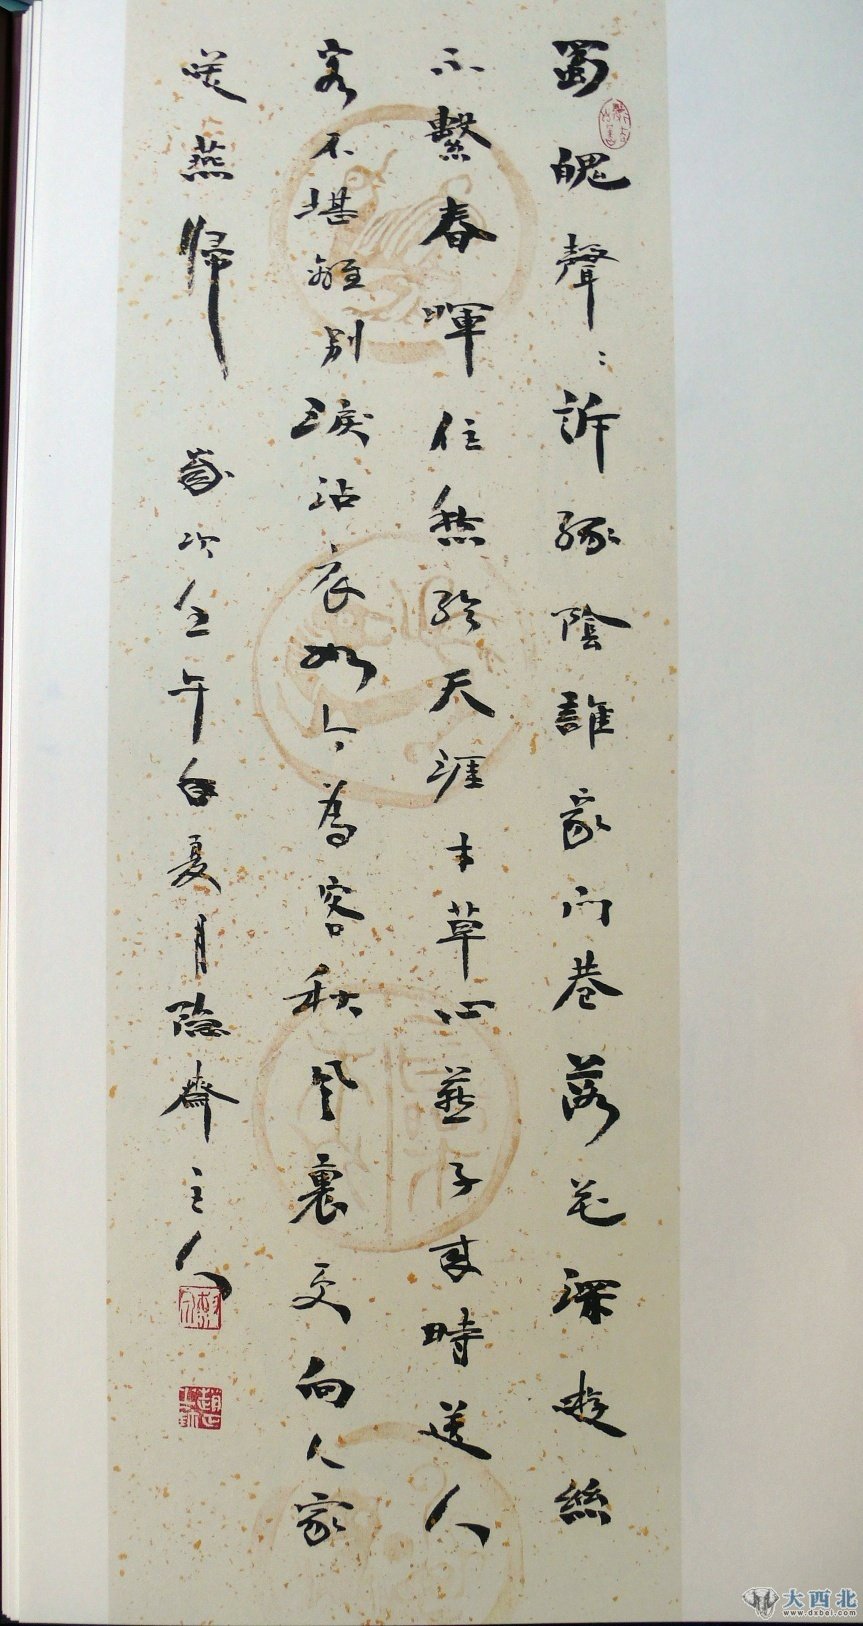 蜀魄聲〻訴緑陰誰家門巷落花深遊絲
不繫春暉住愁絶天涯寸草心燕子來時送人
客不堪離別淚沾衣如今為客秋風裏更向人家
送燕歸 歲次壬午年夏月隐齋主人
大西北
www.dxbei.com